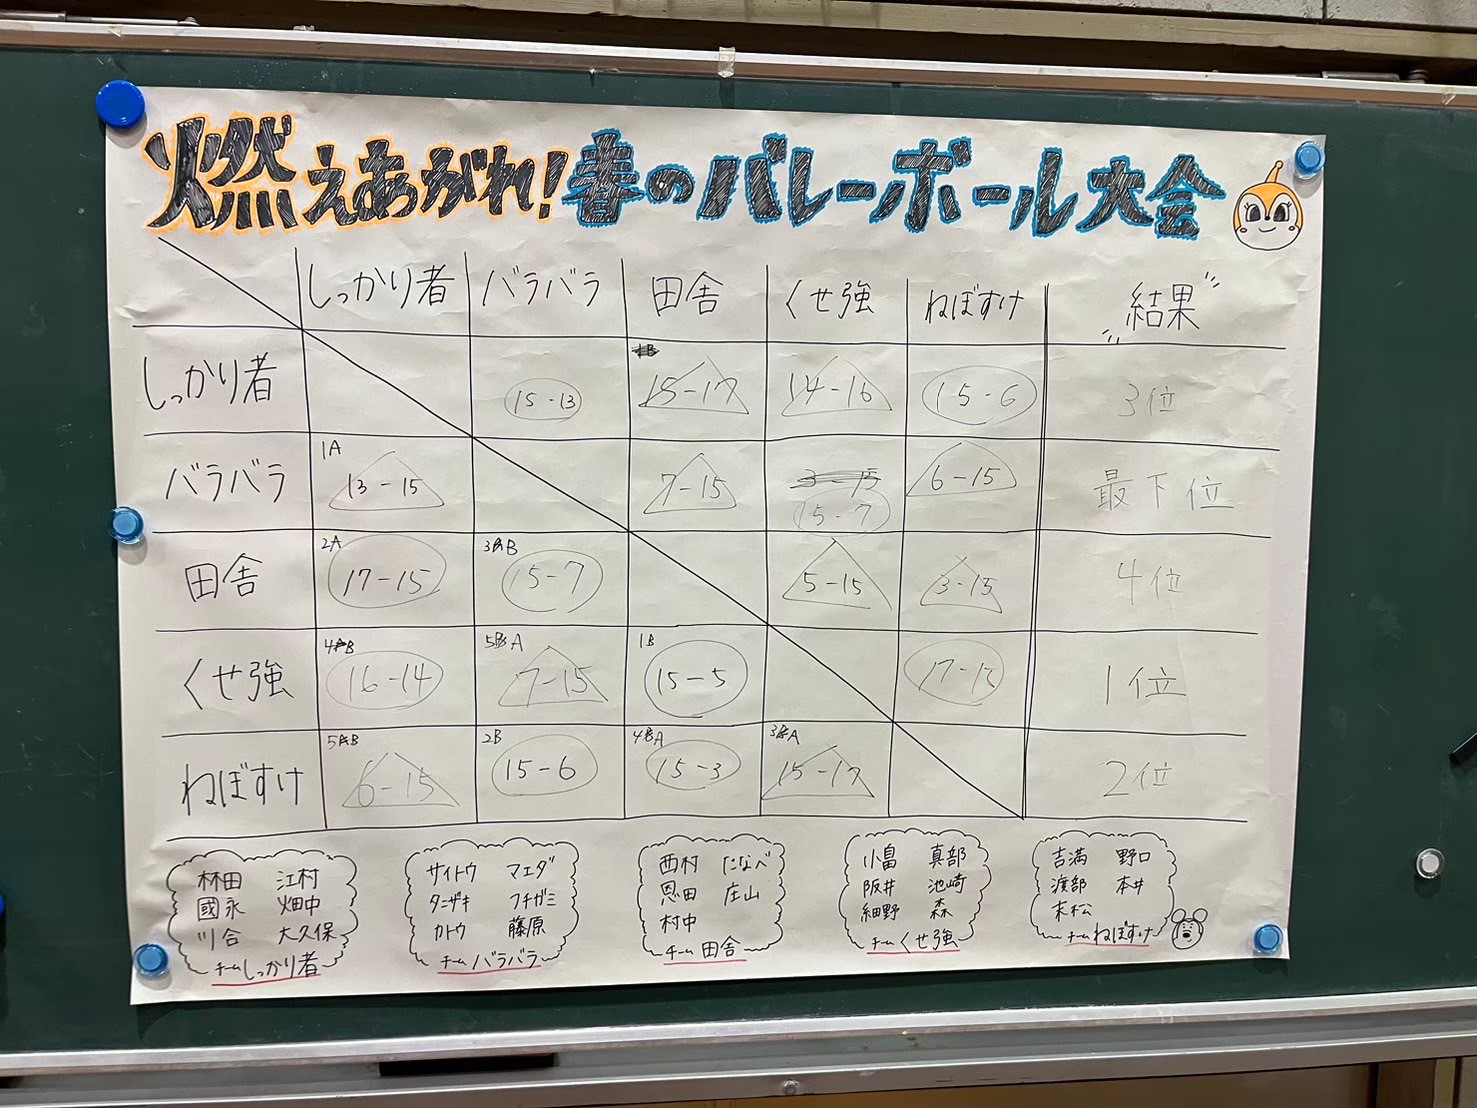 燃えあがれ！春のバレーボール大会
しっかり者 バラバラ 田舎 くせ強 ねぼすけ 結果
しっかり者 15-13 15-17 14-16 15-6 3位
バラバラ 1A 13-15 7-15 15-7 6-15 最下位
田舎 2A 17-15 3B 15-7 5-15 3-15 4位
くせ強 4B 16-14 5A 7-15 1B 15-5 17-15 1位
ねぼすけ 5B 6-15 2B 15-6 4A 15-3 3A 15-17 2位
林田 江村
國永 畑中
川合 大久保
チームしっかり者
サイトウ マエダ
タニザキ フチガミ
カトウ 藤原
チームバラバラ
西村 たなべ
恩田 庄山
村中
チーム田舎
小畠 真部
阪井 池崎
細野 森
チームくせ強
吉満 野口
渡部 本井
末松
チームねぼすけ